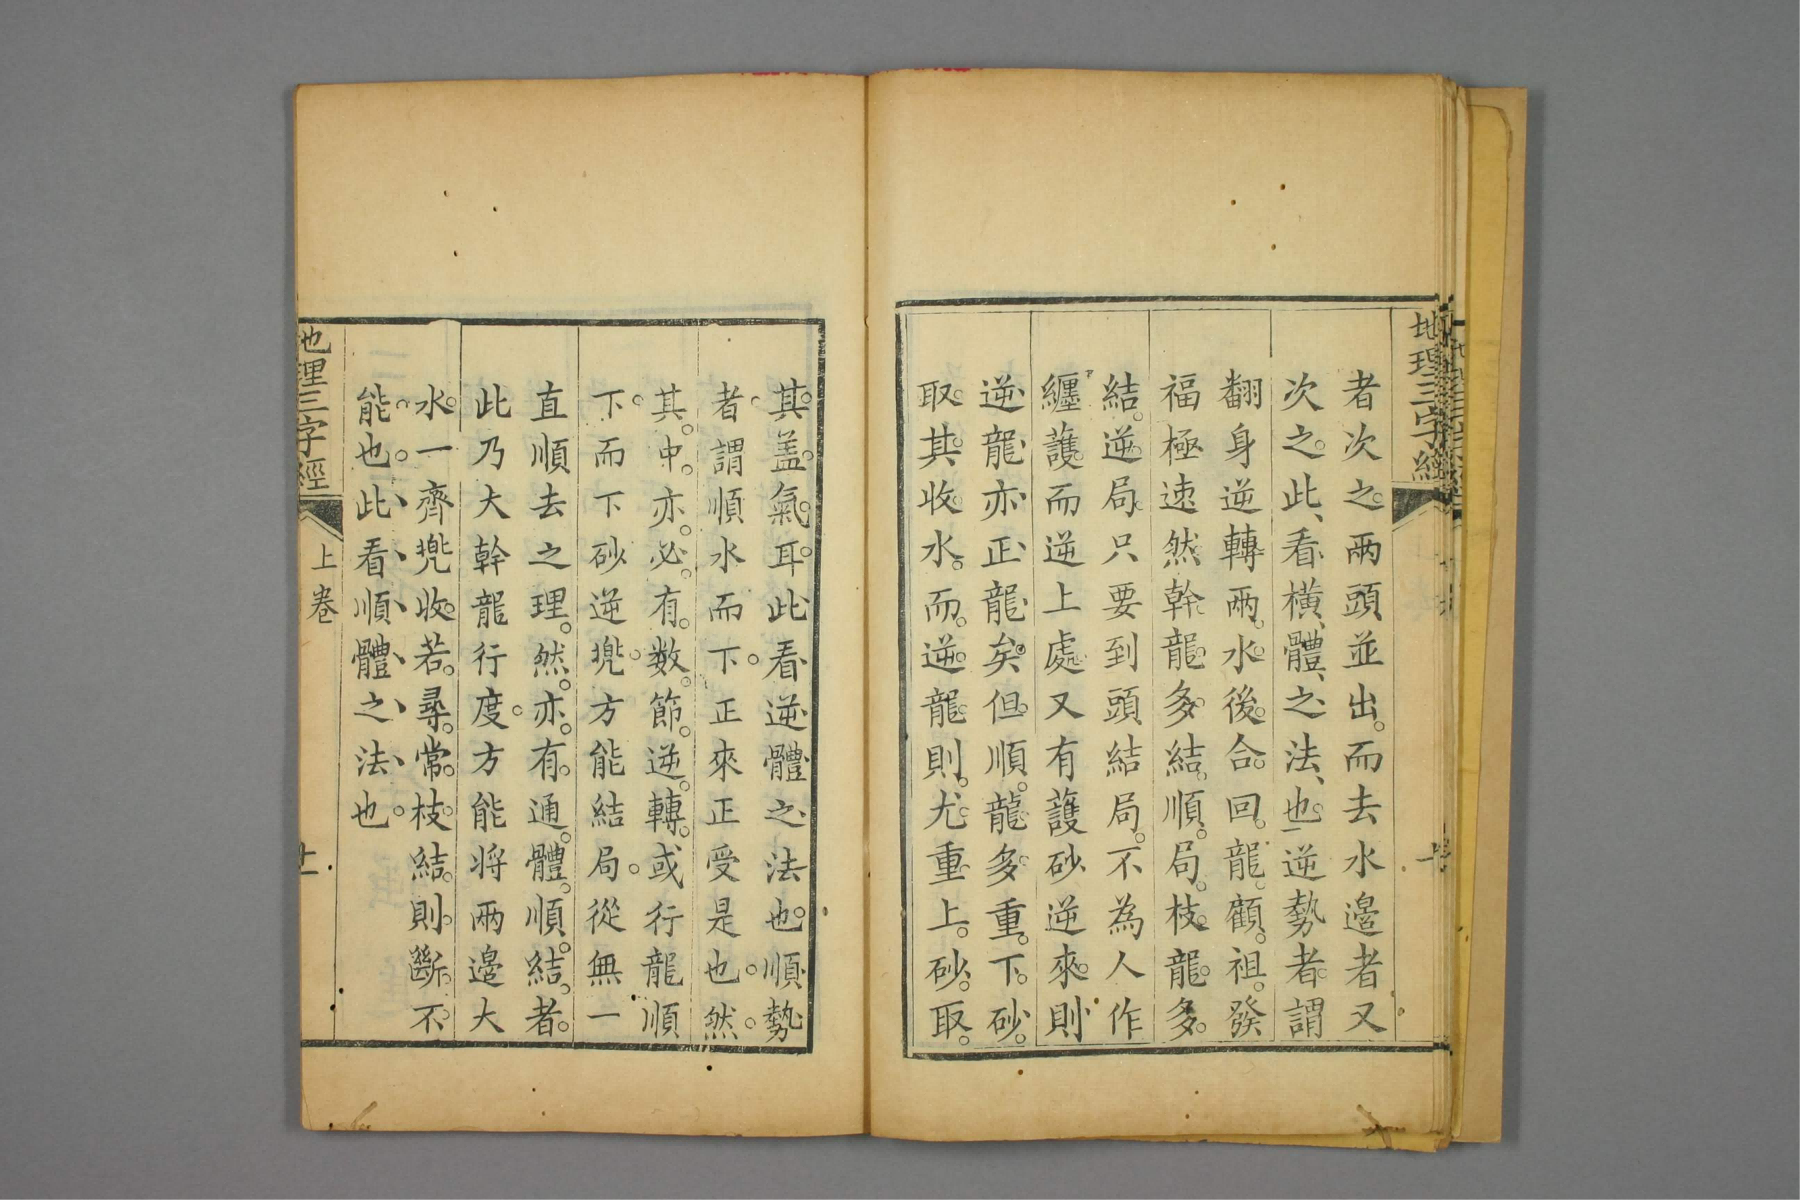 地理三字經
者次之兩頭並出而去水邊者又
次之此看橫體之法也逆勢者謂
翻身逆轉兩水後合回龍顧祖發
福極速然幹龍多結順局枝龍多
結逆局只要到頭結局不為人作
纏護而逆上處又有護砂逆來則
逆龍亦正龍矣但順龍多重下砂
取其收水而逆龍則尤重上砂取
其蓋氣耳此看逆體之法也順勢
者謂順水而下正來正受是也然
其中亦必有数節逆轉或行龍順
下而下砂逆兠方能結局從無一
直順去之理然亦有通體順結者
此乃大幹龍行度方能将兩邊大
水一齊兠收若尋常枝結則斷不
能也此看順體之法也
地理三字經
上卷